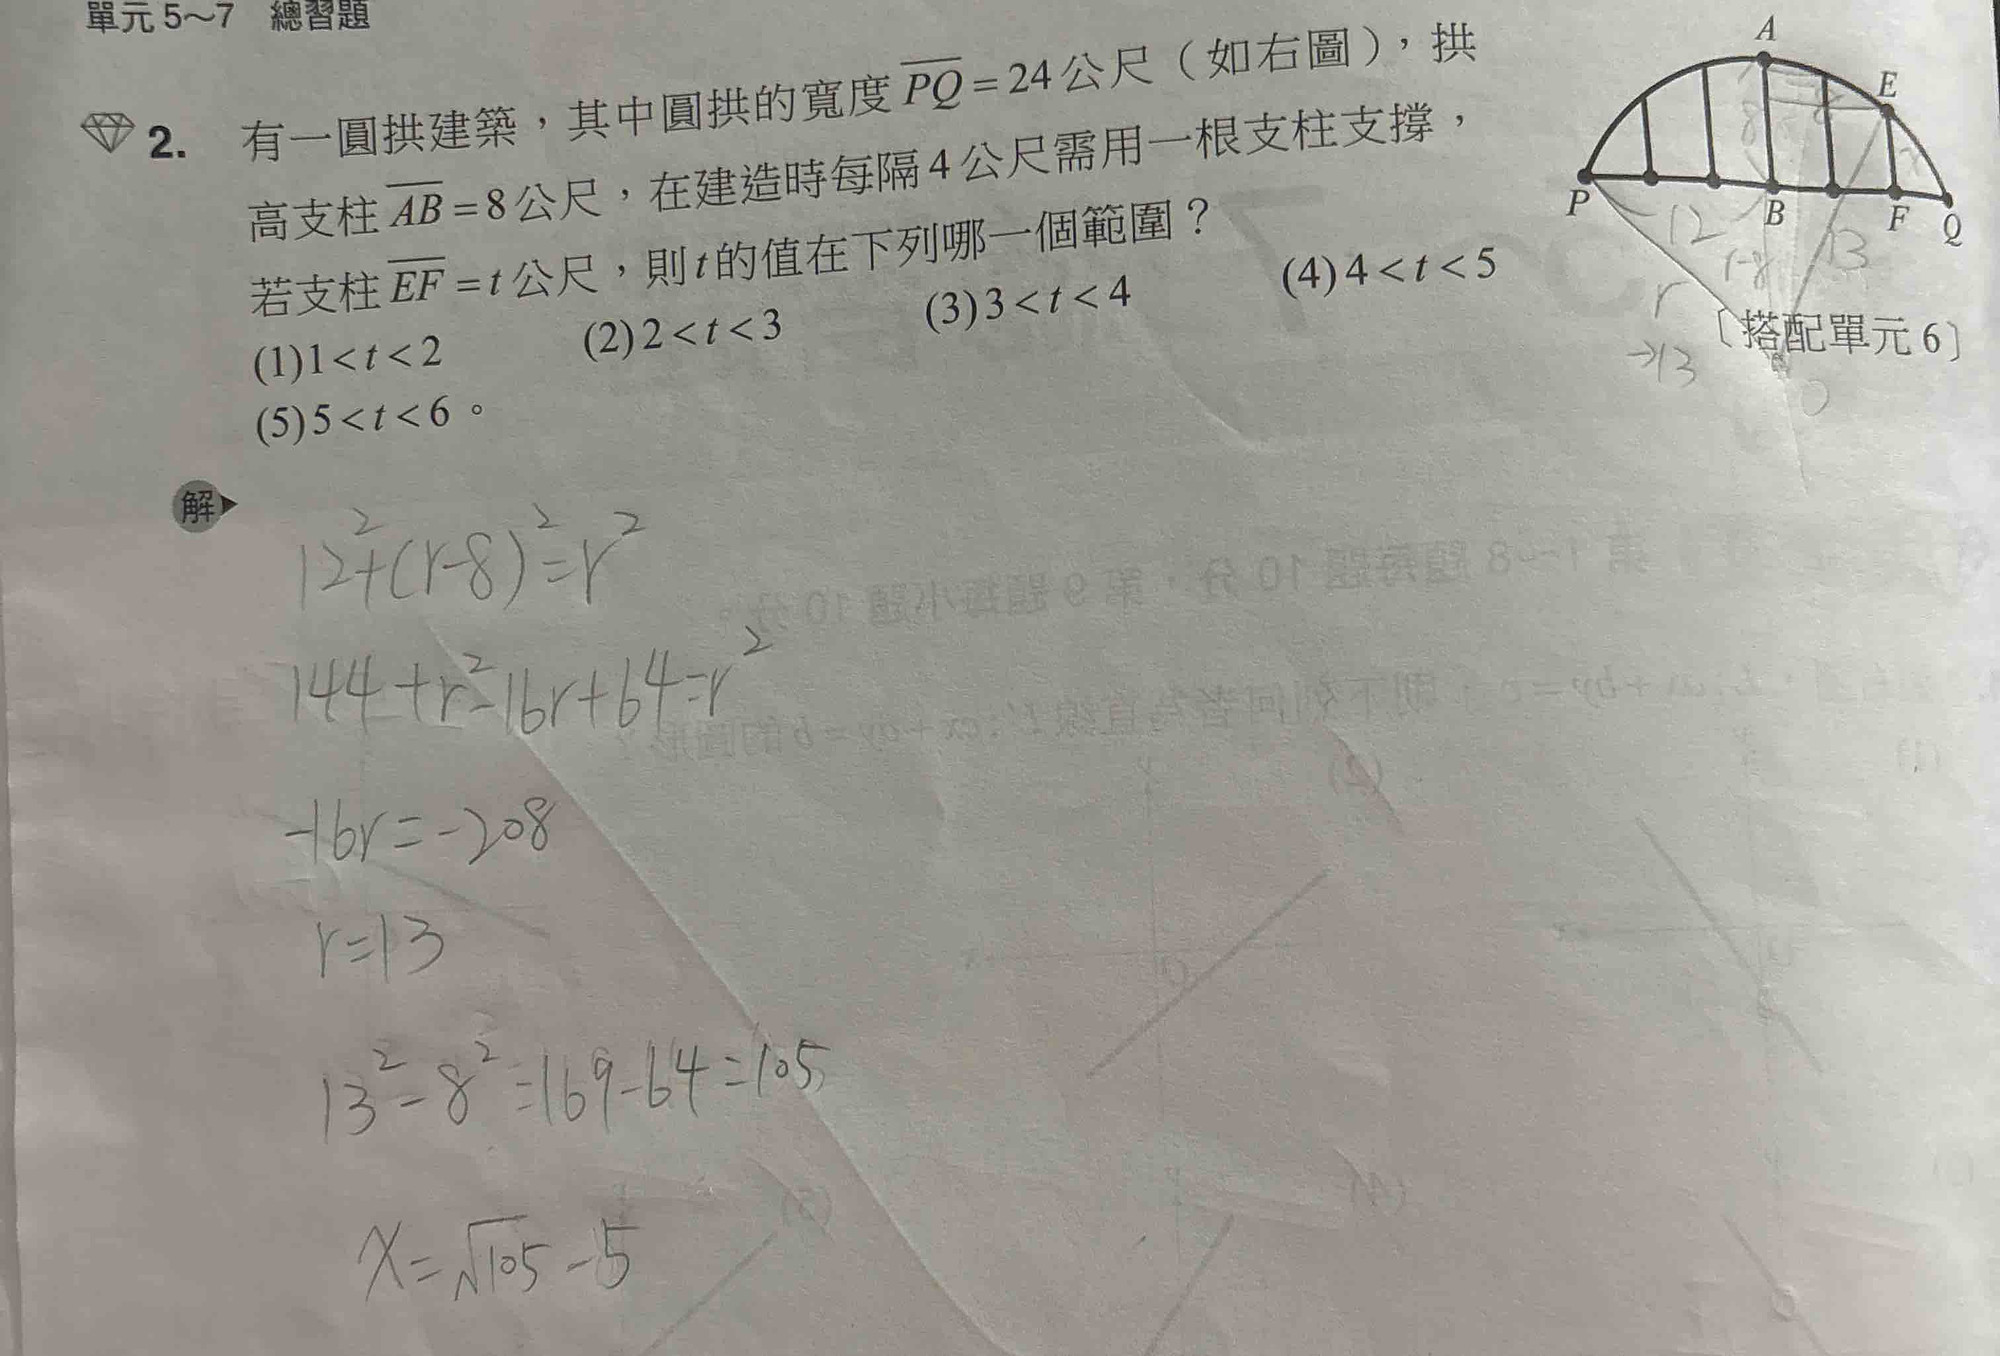 單元 5～7 總習題
2. 有一圓拱建築，其中圓拱的寬度 PQ = 24 公尺（如右圖），拱
高支柱 AB = 8 公尺，在建造時每隔 4 公尺需用一根支柱支撐，
若支柱 EF = t 公尺，則 t 的值在下列哪一個範圍？
(1) 1 < t < 2 (2) 2 < t < 3 (3) 3 < t < 4 (4) 4 < t < 5
(5) 5 < t < 6。
〔搭配單元 6〕
A
E
8
8
P
B
F
Q
12
r-8
13
r
→13
O
解
12²+(r-8)²=r²
144+r²-16r+64=r²
-16r=-208
r=13
13²-8²=169-64=105
x=√105-5